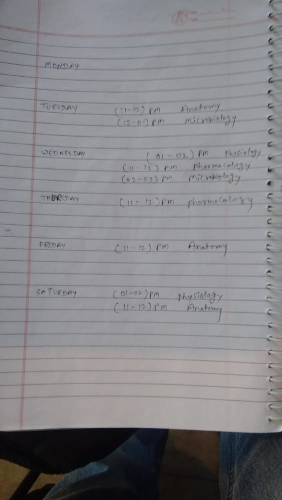 MONDAY
TUESDAY (11-12) pm Anatomy
(12-01) pm microbiology
WEDNESDAY (01-02) pm physiology
(11-12) pm pharmacology
(02-03) pm microbiology
THURSDAY (11-12) pm pharmacology
FRIDAY (11-12) pm Anatomy
SATURDAY (01-02) pm physiology
(11-12) pm Anatomy